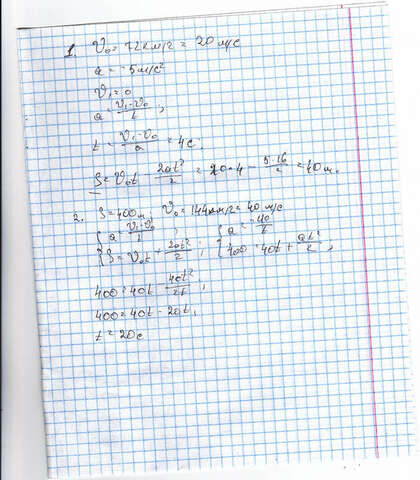 1. V₀ = 72 км/ч = 20 м/с
a = -5 м/с²
V₁ = 0
a = (V₁-V₀)/t ;
t = (V₁-V₀)/a = 4c.
S = V₀t - 2at²/2 = 20·4 - 5·16/2 = 40 м.
2. S = 400 м, V₀ = 144 км/ч = 40 м/с
{ a = (V₁-V₀)/t ; { a = -40/t
{ S = V₀t + 2at²/2 ; { 400 = 40t + at²/2 ;
400 = 40t - 40t²/2t ;
400 = 40t - 20t,
t = 20c